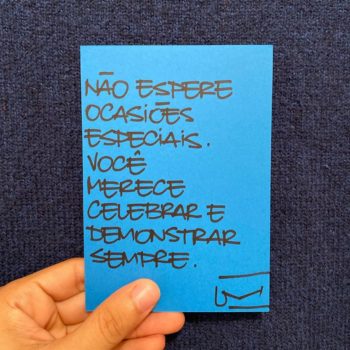 NÃO ESPERE
OCASIÕES
ESPECIAIS.
VOCÊ
MERECE
CELEBRAR E
DEMONSTRAR
SEMPRE.